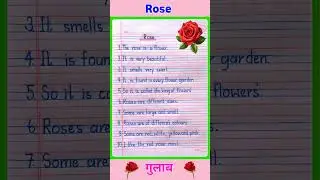 Rose
Rose.
1. The rose is a flower.
2. It is very beautiful.
3. It smells very sweet.
4. It is found in every flower garden.
5. So it is called the king of flowers'.
6. Roses are different sizes.
7. Some are large and small.
8. Roses are of different colours.
9. Some are red, white, yellow and pink.
10. I like the red rose most.
3. It smells
4. It is found
garden.
5. So it is ca
flowers'.
6. Roses are
7. Some are
गुलाब